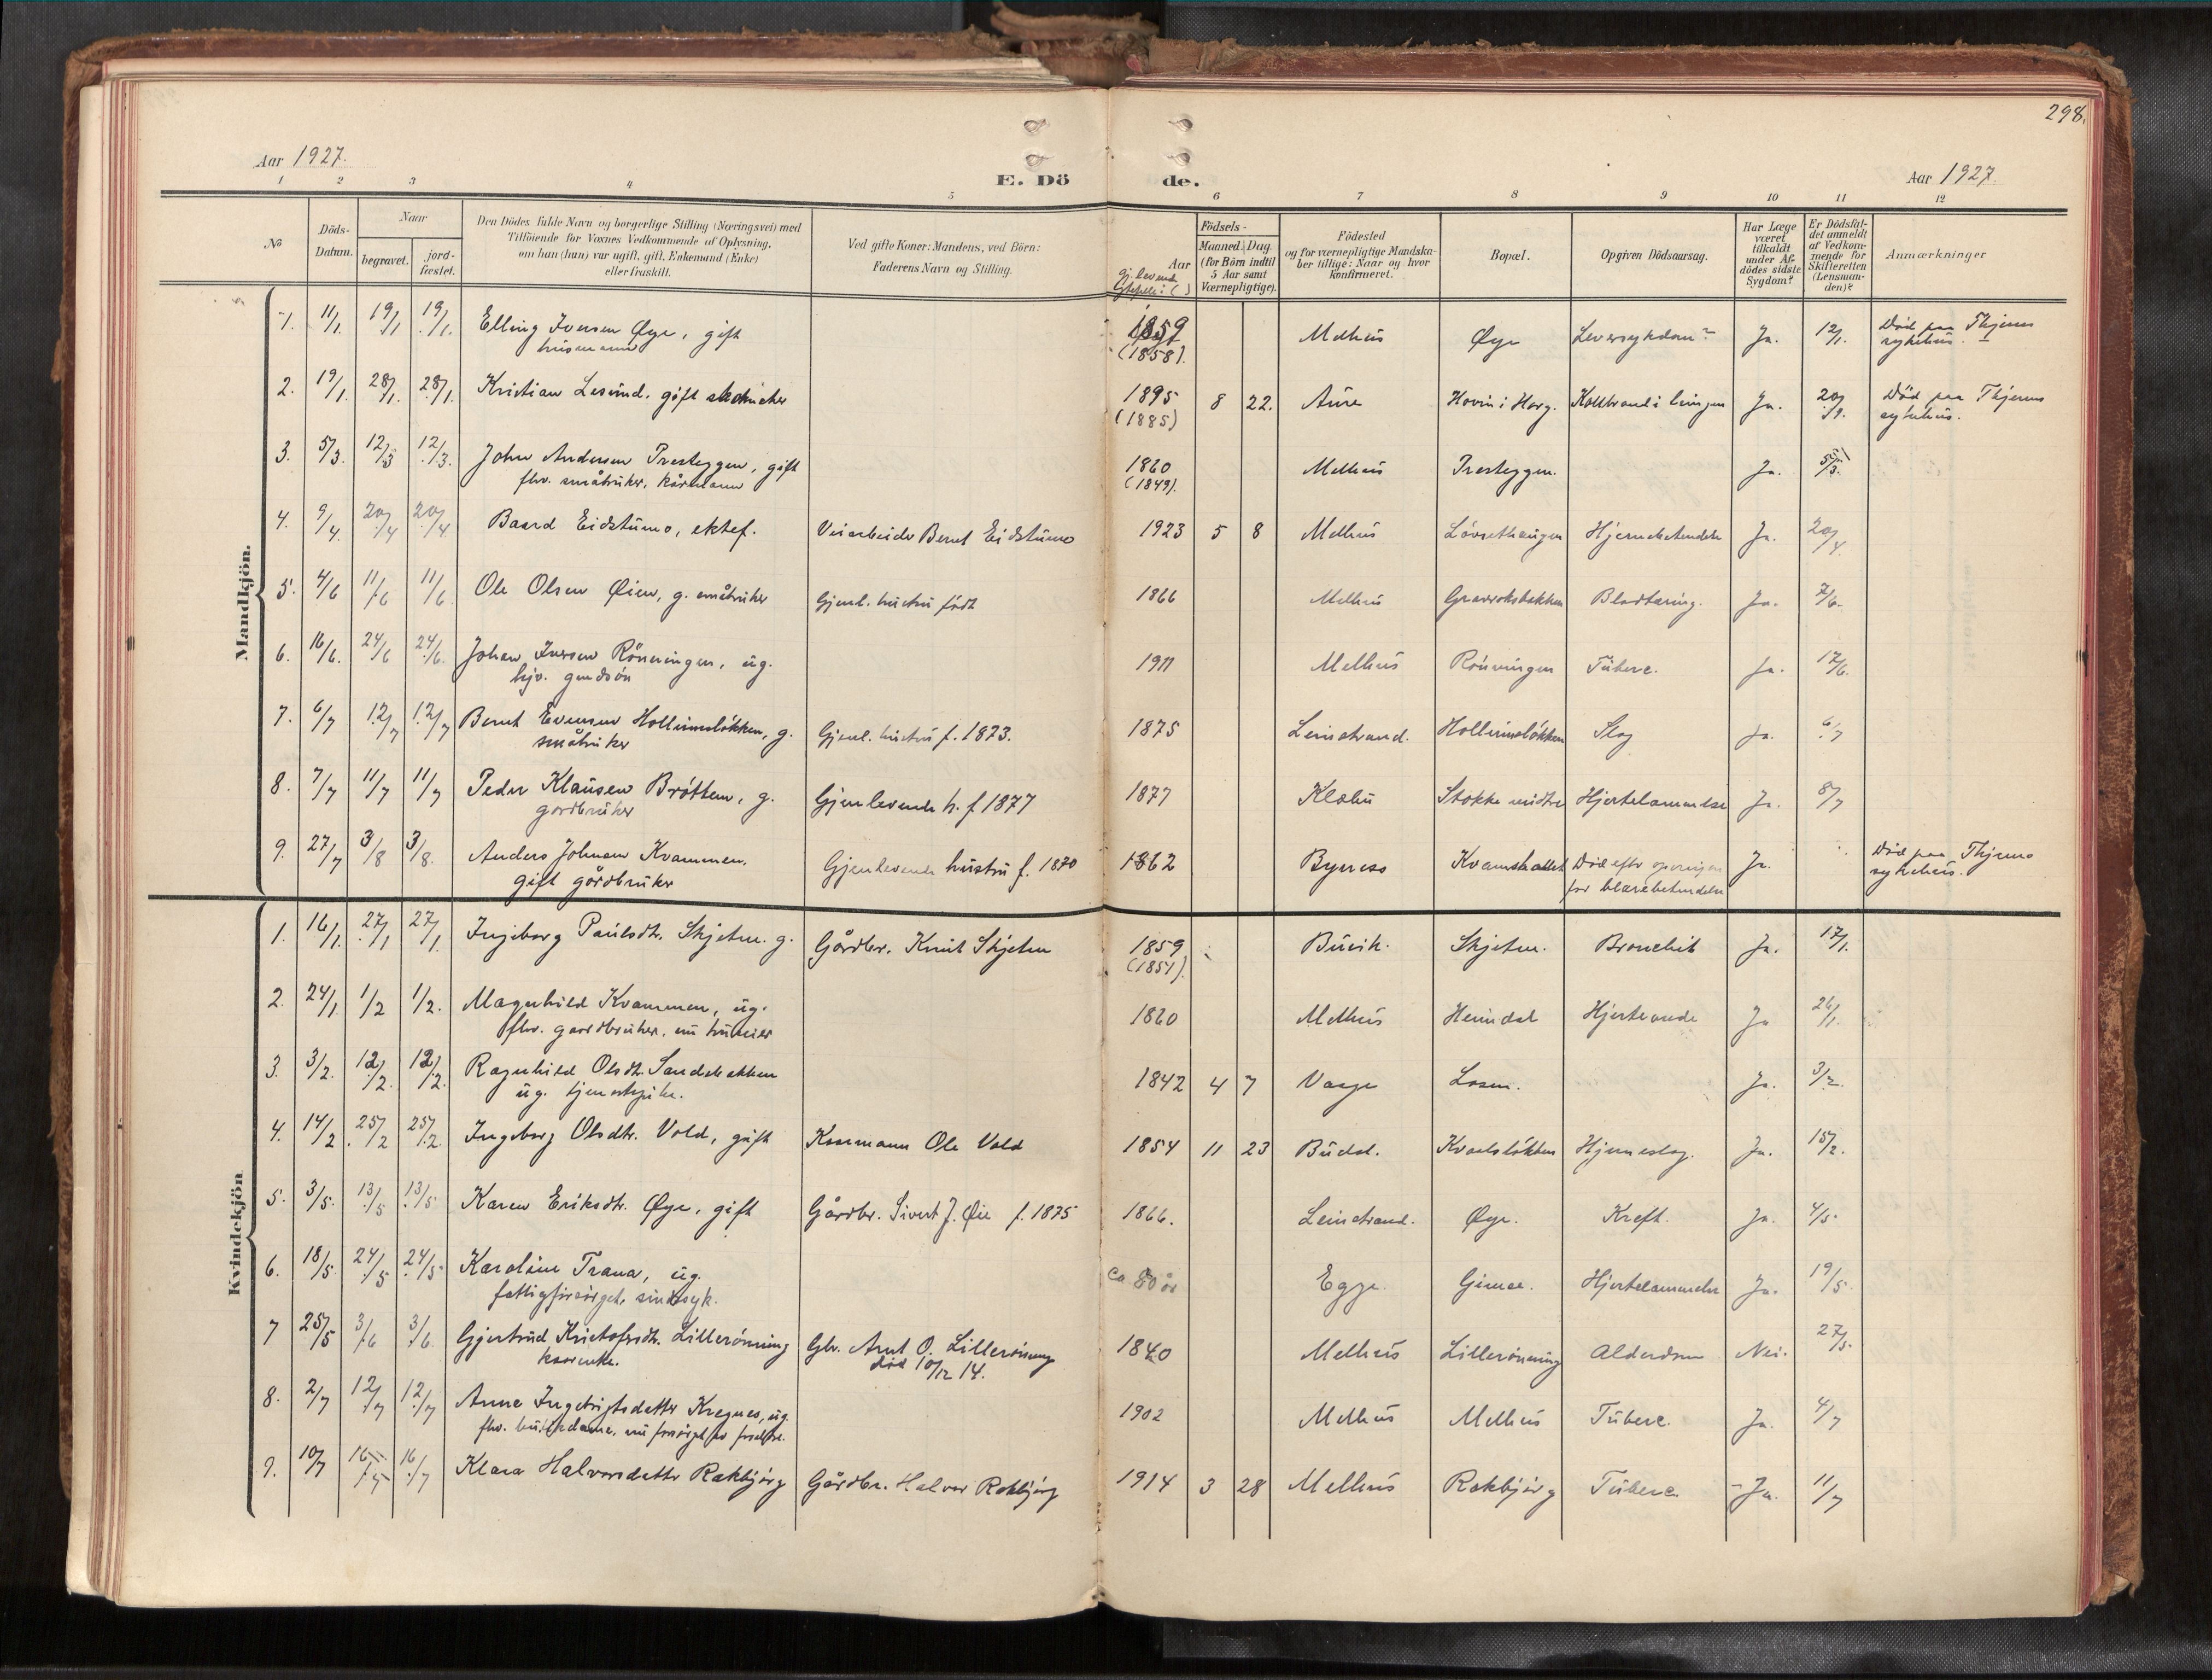 298.
Aar 1927.
E. Dö de.
Aar 1927.
1 2 3 4 5 6 7 8 9 10 11 12
No
Döds-Datum.
Naar
begravet.
jord-fæstet.
Den Dödes fulde Navn og borgerlige Stilling (Næringsvei) med
Tilföiende for Voxnes Vedkommende af Oplysning,
om han (hun) var ugift, gift, Enkemand (Enke)
eller fraskilt.
Ved gifte Koner: Mandens, ved Börn:
Faderens Navn og Stilling.
Aar
Födsels-
Maaned. Dag.
(for Börn indtil
5 Aar samt
Værnepligtige).
Födested
og for værnepligtige Mandska-
ber tillige: Naar og hvor
konfirmeret.
Bopæl.
Opgiven Dödsaarsag.
Har Læge
været
tilkaldt
under Af-
dödes sidste
Sygdom?
Er Dödsfal-
det anmeldt
af Vedkom-
mende for
Skifteretten
(Lensman-
den)?
Anmærkninger
Mandkjön.
1. 11/1. 19/1 19/1. Elling Iversen Øye, gift 1859 Melhus Øye Leversykdom? Ja. 12/1. Död paa Thjems
husmann (1858). sykehus.
2. 19/1. 28/1. 28/1. Kristian Lesund, gift 1895 8 22. Aure Hovin i Horg. Koldbrand i lungen Ja. 20/1. Död paa Thjems
(1885) sykehus.
3. 5/3. 12/3 12/3. John Andersen Presteggen, gift 1860 Melhus Presteggen. Ja. 5/3.
fhv. småbruker, kårmann (1849).
4. 9/4. 20/4 20/4 Baard Eidstumo, ektef. Veiarbeider Bernt Eidstumo 1923 5 8 Melhus Løvsethaugen Hjernebetendelse Ja. 20/4.
5. 4/6 11/6 11/6 Ole Olsen Øien, g. småbruker Gjenl. hustru født 1866 Melhus Gravraksbakken Ja. 7/6.
6. 16/6. 24/6 24/6. Johan Iversen Rönningen, ug. 1911 Melhus Rönningen Tuberc. Ja. 17/6.
hjv. gmdsön
7. 6/7 12/7 12/7 Bernt Evensen Hollumslökken, g. Gjenl. hustru f. 1873. 1875 Leinstrand. Hollumslökken Slag Ja. 6/7
småbruker
8. 7/7 11/7 11/7 Peder Klausen Bröttem, g. Gjenlevende h. f 1877 1877 Klæbu Stokke midtre Hjertelammelse Ja. 8/7
gardbruker
9. 27/7 3/8 3/8. Anders Johnsen Kvammen, Gjenlevende hustru f. 1870 1862 Byness Död efter operasjon Ja. Död paa Thjems
gift gårdbruker for blærebetendelse sykehus.
Kvindekjön
1. 16/1. 27/1 27/1. Ingeborg Paulsdtr. Skjetne. g. Gårdbr. Knut Skjetne 1859 Buvik. Skjetne. Bronchit Ja. 17/1.
(1854).
2. 24/1 1/2 1/2. Magnhild Kvammen, ug. 1860 Melhus Heimdal Hjerteonde Ja 26/1.
fhv. gaardbruker, nu huseier
3. 3/2. 12/2. 12/2. Ragnhild Olsdtr. Sandbakken 1842 4 7 Vaage Losen. Ja. 3/2.
ug. tjenestepike.
4. 14/2 25/2 25/2. Ingeborg Olsdtr. Vold, gift Kaarmann Ole Vold 1854 11 23 Budal. Kvaalslökken Hjerneslag. Ja. 15/2.
5. 3/5. 13/5 13/5 Karen Eriksdtr. Øye, gift Gårdbr. Sivert J. Øie f. 1875 1866. Leinstrand. Øye. Kreft. Ja. 4/5.
6. 18/5. 24/5 24/5 Karoline Trana, ug. ca 80 år Egge. Gimse. Hjertelammelse Ja. 19/5.
fattigforsörget, sindssyk.
7 25/5 3/6 3/6. Gjertrud Kristofersdtr. Lillerönning Gbr. Arnt O. Lillerönning 1840 Melhus Lillerönning Alderdom Nei. 27/5.
kaarenke. död 10/12 14.
8. 2/7 12/7 12/7 Anne Ingebrigtsdatter Kregnes, ug. 1902 Melhus Melhus Tuberc. Ja. 4/7
fhv. butikdame, nu forsörget av foreldre.
9. 10/7 16/7 16/7 Klara Halvorsdatter Rakbjörg Gårdbr. Halvor Rakbjörg 1914 3 28 Melhus Rakbjörg Tuberc. Ja. 11/7